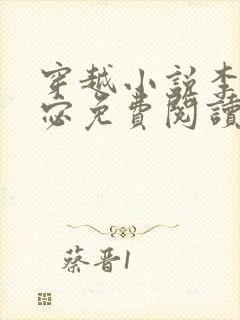 穿越小說李
宓免費閱讀
蔡晋1